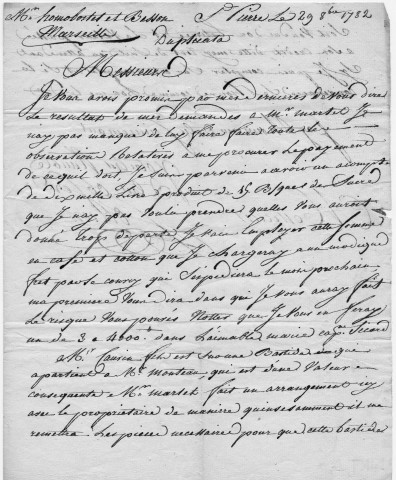 Mrs homobostel et Besson St Pierre Le 29 8bre 1782
Marseille
Duplicata
Messieurs
Je vous avois promis par mes dernieres de vous dire
le resultat de mes demandes a Mr martel Je
nay pas manqué de luy faire faire toute les
observation a me procurer le payement
de ce quil doit, Je suis parvenu a avoir un acompte
de dix mille Livre produit de 15 Bques de Sucre
que Je nay pas voulu prendre quelles vous auront
donné trop de perte Je vais Employer cette somme
en caffé et cotton que Je chargeray a un modique
fret par le convoy qui Sexpedira le mois prochain
ma premiere vous dira dans qui Je vous auray fait
Le risque vous pouvés Notter que Je vous en feray
un de 3 a 4000 tt dans L'aimable marie cape Sicard
a Mr Laurin fils est sur une Bastide que
apartient a Mr Monteau qui est d'une Valeur
consequente a Mr martel fait un arrangement icy
avec le proprietaire de maniere
remettra Les piece necessaire pour que cette bastide